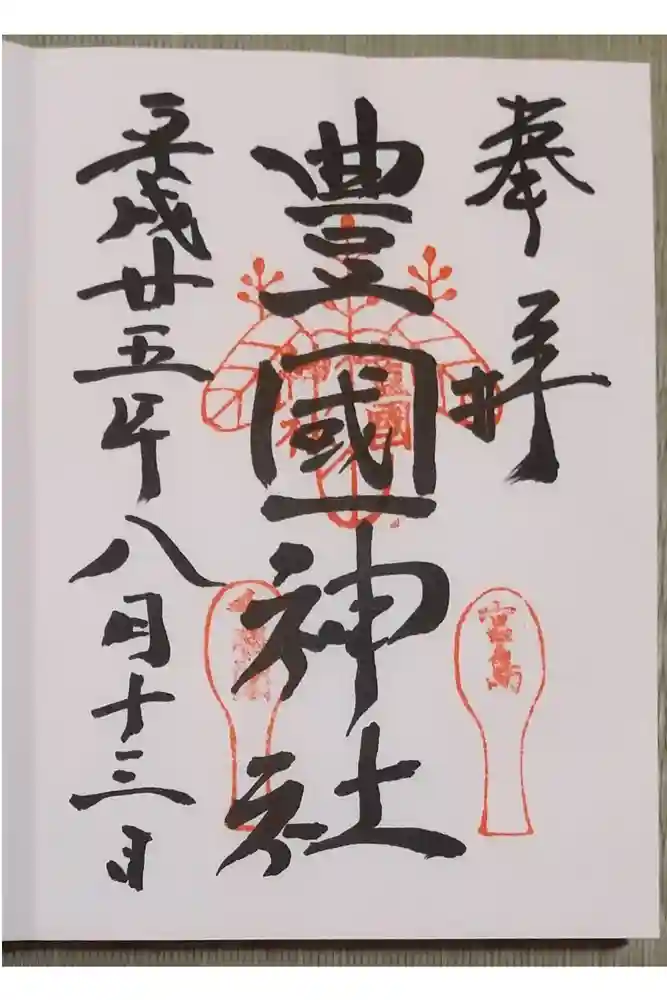 奉拝
豊國神社
平成廿五年八月十三日
豊國
神社
宮島